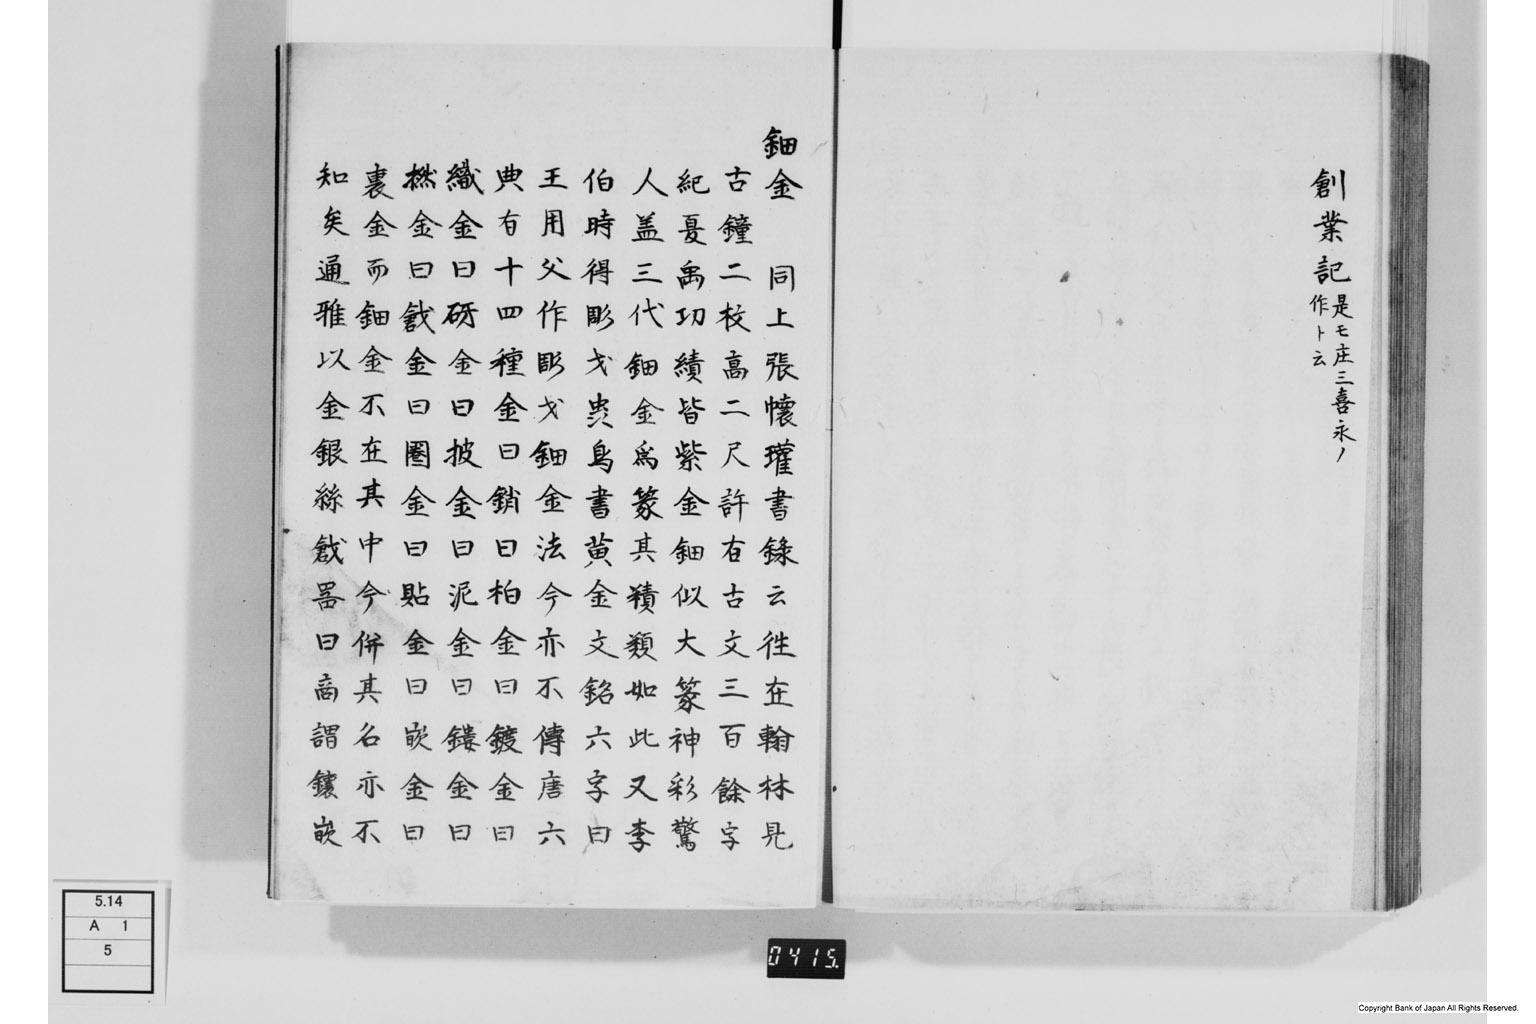 創業記 是モ庄三喜永ノ
作ト云
鈿金 同上張懷瓘書錄云徃在翰林見
古鐘二枚高二尺許有古文三百餘字
紀夏禹功績皆紫金鈿似大篆神彩驚
人盖三代鈿金爲篆其蹟類如此又李
伯時得彫戈䖝鳥書黄金文銘六字曰
王用父作彫戈鈿金法今亦不傳唐六
典有十四種金曰銷曰柏金曰鍍金曰
織金曰砑金曰披金曰泥金曰鏤金曰
撚金曰戧金曰圏金曰貼金曰嵌金曰
裏金而鈿金不在其中今併其名亦不
知矣通雅以金銀絲戧噐曰商謂鑲嵌
5.14
A 1
5
0415
Copyright Bank of Japan All Rights Reserved.